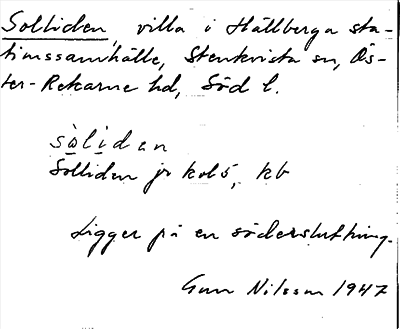 Solliden, villa i Hällberga sta-
tionssamhälle, Stenkvista sn, Ös-
ter-Rekarne hd, Söd l.
sòlidan
Solliden jr kol 5, kb
Ligger på en södersluttning.
Gun Nilsson 1947